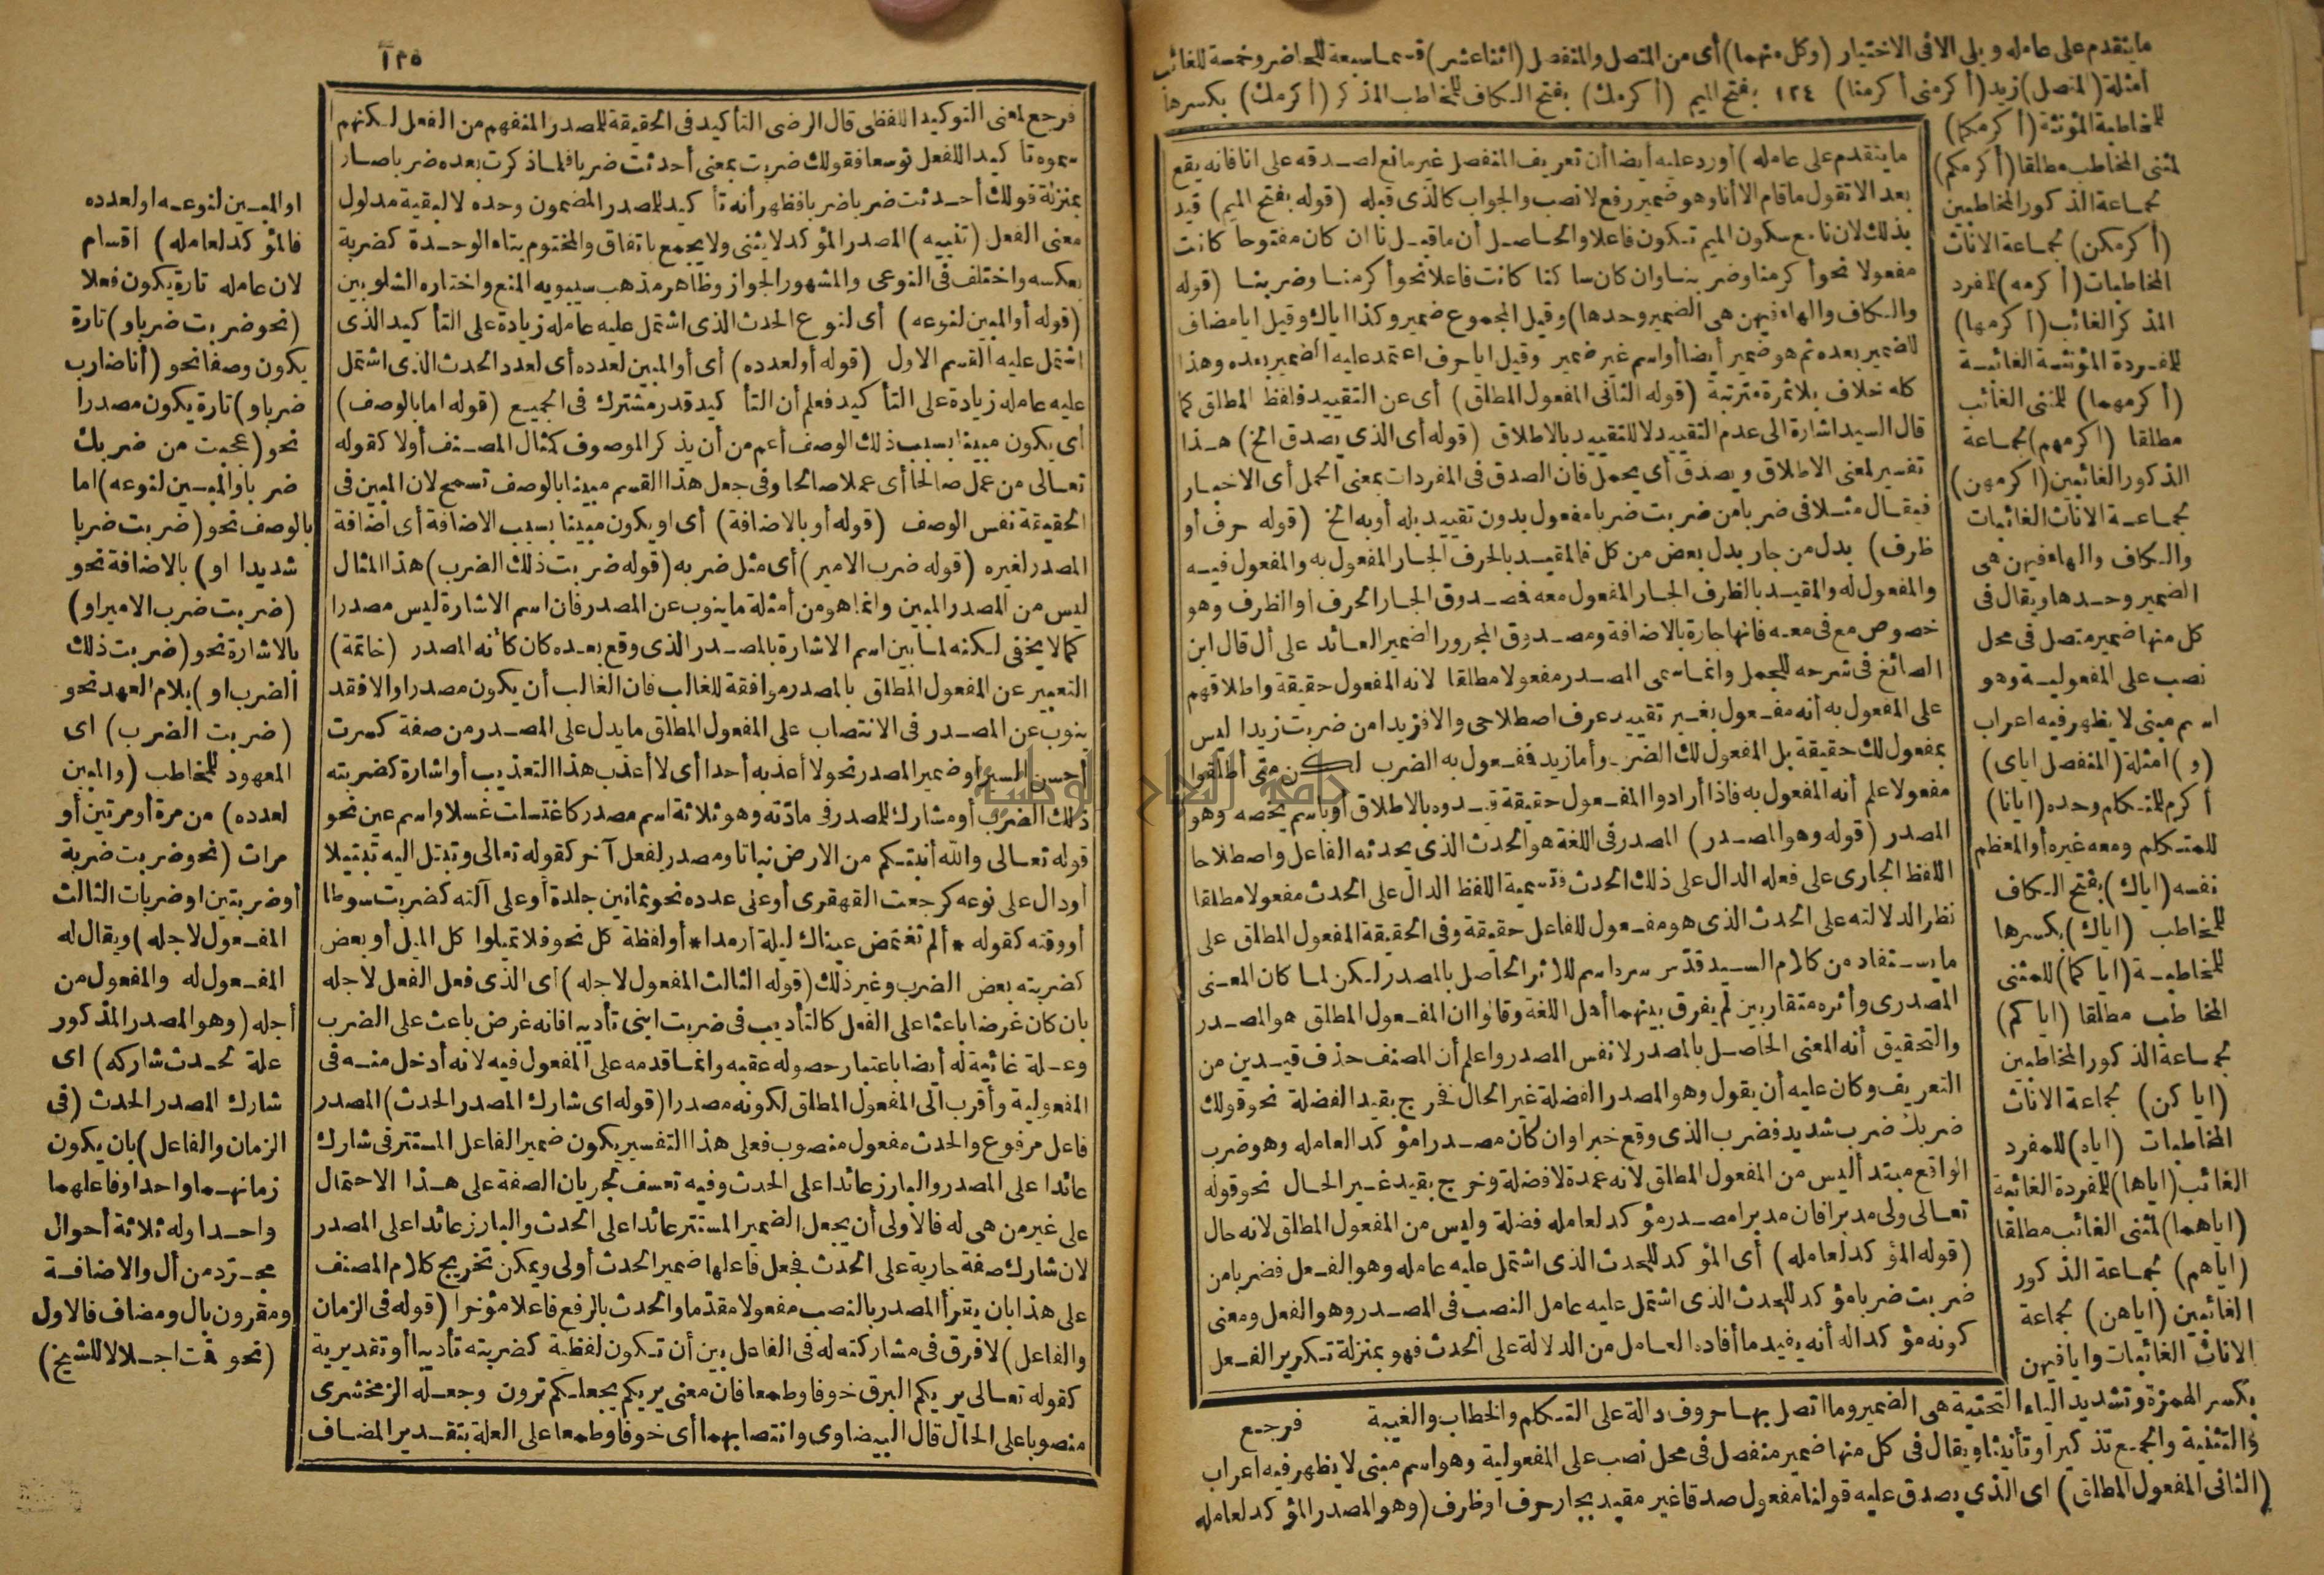 ما يتقدم على عامله ويلى الا فى الاختيار (وكل منهما) أى من المتصل والمنفصل (اثنا عشر) قسما سبعة للحاضر وخمسة للغائب
أمثلة (المتصل) زيد (أكرمنى أكرمنا) ١٢٤ بفتح الميم (أكرمك) بفتح الكاف للمخاطب المذكر (أكرمك) بكسرها
للمخاطبة المؤنثة (أكرمكما)
لمثنى المخاطب مطلقا (أكرمكم)
لجماعة الذكور المخاطبين
(أكرمكن) لجماعة الاناث
المخاطبات (أكرمه) للمفرد
المذكر الغائب (أكرمها)
للمفردة المؤنثة الغائبة
(أكرمهما) للمثنى الغائب
مطلقا (أكرمهم) لجماعة
الذكور الغائبين (أكرمهن)
لجماعة الاناث الغائبات
والكاف والهاء فيهن هى
الضمير وحدها ويقال فى
كل منها ضمير متصل فى محل
نصب على المفعولية وهو
اسم مبنى لا يظهر فيه اعراب
(و) أمثلة (المنفصل اياى)
أكرم للمتكلم وحده (ايانا)
للمتكلم ومعه غيره أو المعظم
نفسه (اياك) بفتح الكاف
للمخاطب (اياك) بكسرها
للمخاطبة (اياكما) للمثنى
المخاطب مطلقا (اياكم)
لجماعة الذكور المخاطبين
(اياكن) لجماعة الاناث
المخاطبات (اياه) للمفرد
الغائب (اياها) للمفردة الغائبة
(اياهما) لمثنى الغائب مطلقا
(اياهم) لجماعة الذكور
الغائبين (اياهن) لجماعة
الاناث الغائبات وايا فيهن
بكسر الهمزة وتشديد الياء التحتية هى الضمير وما اتصل بها حروف دالة على التكلم والخطاب والغيبة
والتثنية والجمع تذكيرا وتأنيثا ويقال فى كل منها ضمير منفصل فى محل نصب على المفعولية وهو اسم مبنى لا يظهر فيه اعراب
(الثانى المفعول المطلق) اى الذى يصدق عليه قولنا مفعول صدقا غير مقيد بجار حرف او ظرف (وهو المصدر المؤكد لعامله
ما يتقدم على عامله) أورد عليه أيضا أن تعريف المنفصل غير مانع لصدقه على انا فانه يقع
بعد الا تقول ما قام الا أنا وهو ضمير رفع لا نصب والجواب كالذى قبله (قوله بفتح الميم) قيد
بذلك لان نا مع سكون الميم تكون فاعلا والحاصل أن ما قبل نا ان كان مفتوحا كانت
مفعولا نحو أكرمنا وضربنا وان كان ساكنا كانت فاعلا نحو أكرمنا وضربنا (قوله
والكاف والهاء فيهن هى الضمير وحدها) وقيل المجموع ضمير وكذا اياك وقيل ايا مضاف
للضمير بعده ثم هو ضمير أيضا أو اسم غير ضمير وقيل ايا حرف اعتمد عليه الضمير بعده وهذا
كله خلاف بلا ثمرة مترتبة (قوله الثانى المفعول المطلق) أى عن التقييد فلفظ المطلق كما
قال السيد اشارة الى عدم التقييد لا للتقييد بالاطلاق (قوله أى الذى يصدق الخ) هذا
تفسير لمعنى الاطلاق ويصدق أى يحمل فان الصدق فى المفردات بمعنى الحمل أى الاخبار
فيقال مثلا فى ضربا من ضربت ضربا مفعول بدون تقييد بله أو به الخ (قوله حرف أو
ظرف) بدل من جار بدل بعض من كل فالمقيد بالحرف الجار المفعول به والمفعول فيه
والمفعول له والمقيد بالظرف الجار المفعول معه فصدوق الجار الحرف أو الظرف وهو
خصوص مع فى معه فانها جارة بالاضافة ومصدوق المجرور الضمير العائد على أل قال ابن
الصائغ فى شرحه للجمل وانما سمى المصدر مفعولا مطلقا لانه المفعول حقيقة واطلاقهم
على المفعول به أنه مفعول بغير تقييد عرف اصطلاحى والا فزيدا من ضربت زيدا ليس
بمفعول لك حقيقة بل المفعول لك الضرب وأما زيد فمفعول به الضرب لكن متى أطلقوا
مفعولا علم أنه المفعول به فاذا أرادوا المفعول حقيقة قيدوه بالاطلاق أو باسم يخصه وهو
المصدر (قوله وهو المصدر) المصدر فى اللغة هو الحدث الذى يحدثه الفاعل واصطلاحا
اللفظ الجارى على فعله الدال على ذلك الحدث فتسمية اللفظ الدال على الحدث مفعولا مطلقا
نظر الدلالته على الحدث الذى هو مفعول للفاعل حقيقة وفى الحقيقة المفعول المطلق على
ما يستفاد من كلام السيد قدس سره اسم للاثر الحاصل بالمصدر لكن لما كان المعنى
المصدرى وأثره متقاربين لم يفرق بينهما أهل اللغة وقالوا ان المفعول المطلق هو المصدر
والتحقيق أنه المعنى الحاصل بالمصدر لا نفس المصدر واعلم أن المصنف حذف قيدين من
التعريف وكان عليه أن يقول وهو المصدر الفضلة غير الحال فخرج بقيد الفضلة نحو قولك
ضربك ضرب شديد فضرب الذى وقع خبرا وان كان مصدرا مؤكدا لعامله وهو ضرب
الواقع مبتدأ ليس من المفعول المطلق لانه عمدة لا فضلة وخرج بقيد غير الحال نحو قوله
تعالى ولى مدبرا فان مدبرا مصدر مؤكد لعامله فضلة وليس من المفعول المطلق لانه حال
(قوله المؤكد لعامله) أى المؤكد للحدث الذى اشتمل عليه عامله وهو الفعل فضربا من
ضربت ضربا مؤكد للحدث الذى اشتمل عليه عامل النصب فى المصدر وهو الفعل ومعنى
كونه مؤكدا له أنه يفيد ما أفاده العامل من الدلالة على الحدث فهو بمنزلة تكرير الفعل
فرجع
١٢٥
فرجع لمعنى التوكيد اللفظى قال الرضى التأكيد فى الحقيقة للمصدر المنفهم من الفعل لكنهم
سموه تأكيدا للفعل توسعا فقولك ضربت بمعنى أحدثت ضربا فلما ذكرت بعده ضربا صار
بمنزلة قولك أحدثت ضربا ضربا فظهر أنه تأكيد للمصدر المضمون وحده لا لبقية مدلول
معنى الفعل (تنبيه) المصدر المؤكد لا يثنى ولا يجمع باتفاق والمختوم بتاء الوحدة كضربة
بعكسه واختلف فى النوعى والمشهور الجواز وظاهر مذهب سيبويه المنع واختاره الشلوبين
(قوله أو المبين لنوعه) أى لنوع الحدث الذى اشتمل عليه عامله زيادة على التأكيد الذى
اشتمل عليه القسم الاول (قوله أو لعدده) أى أو المبين لعدده أى لعدد الحدث الذى اشتمل
عليه عامله زيادة على التأكيد فعلم أن التأكيد قدر مشترك فى الجميع (قوله اما بالوصف)
أى يكون مبينا بسبب ذلك الوصف أعم من أن يذكر الموصوف كمثال المصنف أولا كقوله
تعالى من عمل صالحا أى عملا صالحا وفى جعل هذا القسم مبينا بالوصف تسمح لان المبين فى
الحقيقة نفس الوصف (قوله أو بالاضافة) أى أو يكون مبينا بسبب الاضافة أى اضافة
المصدر لغيره (قوله ضرب الامير) أى مثل ضربه (قوله ضربت ذلك الضرب) هذا المثال
ليس من المصدر المبين وانما هو من أمثلة ما ينوب عن المصدر فان اسم الاشارة ليس مصدرا
كما لا يخفى لكنه لما بين اسم الاشارة بالمصدر الذى وقع بعده كان كأنه المصدر (خاتمة)
التعبير عن المفعول المطلق بالمصدر موافقة للغالب فان الغالب أن يكون مصدرا والا فقد
ينوب عن المصدر فى الانتصاب على المفعول المطلق ما يدل على المصدر من صفة كسرت
أحسن السير أو ضمير المصدر نحو لا أعذبه أحدا أى لا أعذب هذا التعذيب أو اشارة كضربته
ذلك الضرب أو مشارك للمصدر فى مادته وهو ثلاثة اسم مصدر كاغتسلت غسلا واسم عين نحو
قوله تعالى والله أنبتكم من الارض نباتا ومصدر لفعل آخر كقوله تعالى وتبتل اليه تبتيلا
أو دال على نوعه كرجعت القهقرى أو على عدده نحو ثمانين جلدة أو على آلته كضربت سوطا
أو وقته كقوله * ألم تغتمض عيناك ليلة أرمدا * أو لفظة كل نحو فلا تميلوا كل الميل أو بعض
كضربته بعض الضرب وغير ذلك (قوله الثالث المفعول لاجله) أى الذى فعل الفعل لاجله
بان كان غرضا باعثا على الفعل كالتأديب فى ضربت ابنى تأديبا فانه غرض باعث على الضرب
وعلة غائية له أيضا باعتبار حصوله عقبه وانما قدمه على المفعول فيه لانه أدخل منه فى
المفعولية وأقرب الى المفعول المطلق لكونه مصدرا (قوله اى شارك المصدر الحدث) المصدر
فاعل مرفوع والحدث مفعول منصوب فعلى هذا التفسير يكون ضمير الفاعل المستتر فى شارك
عائدا على المصدر والبارز عائدا على الحدث وفيه تعسف لجريان الصفة على هذا الاحتمال
على غير من هى له فالاولى أن يجعل الضمير المستتر عائدا على الحدث والبارز عائدا على المصدر
لان شارك صفة جارية على الحدث فجعل فاعلها ضمير الحدث أولى ويمكن تخريج كلام المصنف
على هذا بان يقرأ المصدر بالنصب مفعولا مقدما والحدث بالرفع فاعلا مؤخرا (قوله فى الزمان
والفاعل) لا فرق فى مشاركته له فى الفاعل بين أن تكون لفظية كضربته تأديبا أو تقديرية
كقوله تعالى يريكم البرق خوفا وطمعا فان معنى يريكم يجعلكم ترون وجعله الزمخشرى
منصوبا على الحال قال البيضاوى وانتصابهما أى خوفا وطمعا على العلة بتقدير المضاف
او المبين لنوعه او لعدده
فالمؤكد لعامله) أقسام
لان عامله تارة يكون فعلا
(نحو ضربت ضربا و) تارة
يكون وصفا نحو (أنا ضارب
ضربا و) تارة يكون مصدرا
نحو (عجبت من ضربك
ضربا والمبين لنوعه) اما
بالوصف نحو (ضربت ضربا
شديدا او) بالاضافة نحو
(ضربت ضرب الامير او)
بالاشارة نحو (ضربت ذلك
الضرب او) بلام العهد نحو
(ضربت الضرب) اى
المعهود للمخاطب (والمبين
لعدده) من مرة أو مرتين أو
مرات (نحو ضربت ضربة
أو ضربتين او ضربات الثالث
المفعول لاجله) ويقال له
المفعول له والمفعول من
أجله (وهو المصدر المذكور
علة لحدث شاركه) اى
شارك المصدر الحدث (فى
الزمان والفاعل) بان يكون
زمانهما واحدا وفاعلهما
واحدا وله ثلاثة أحوال
مجرد من أل والاضافة
ومقرون بال ومضاف فالاول
(نحو قمت اجلالا للشيخ)